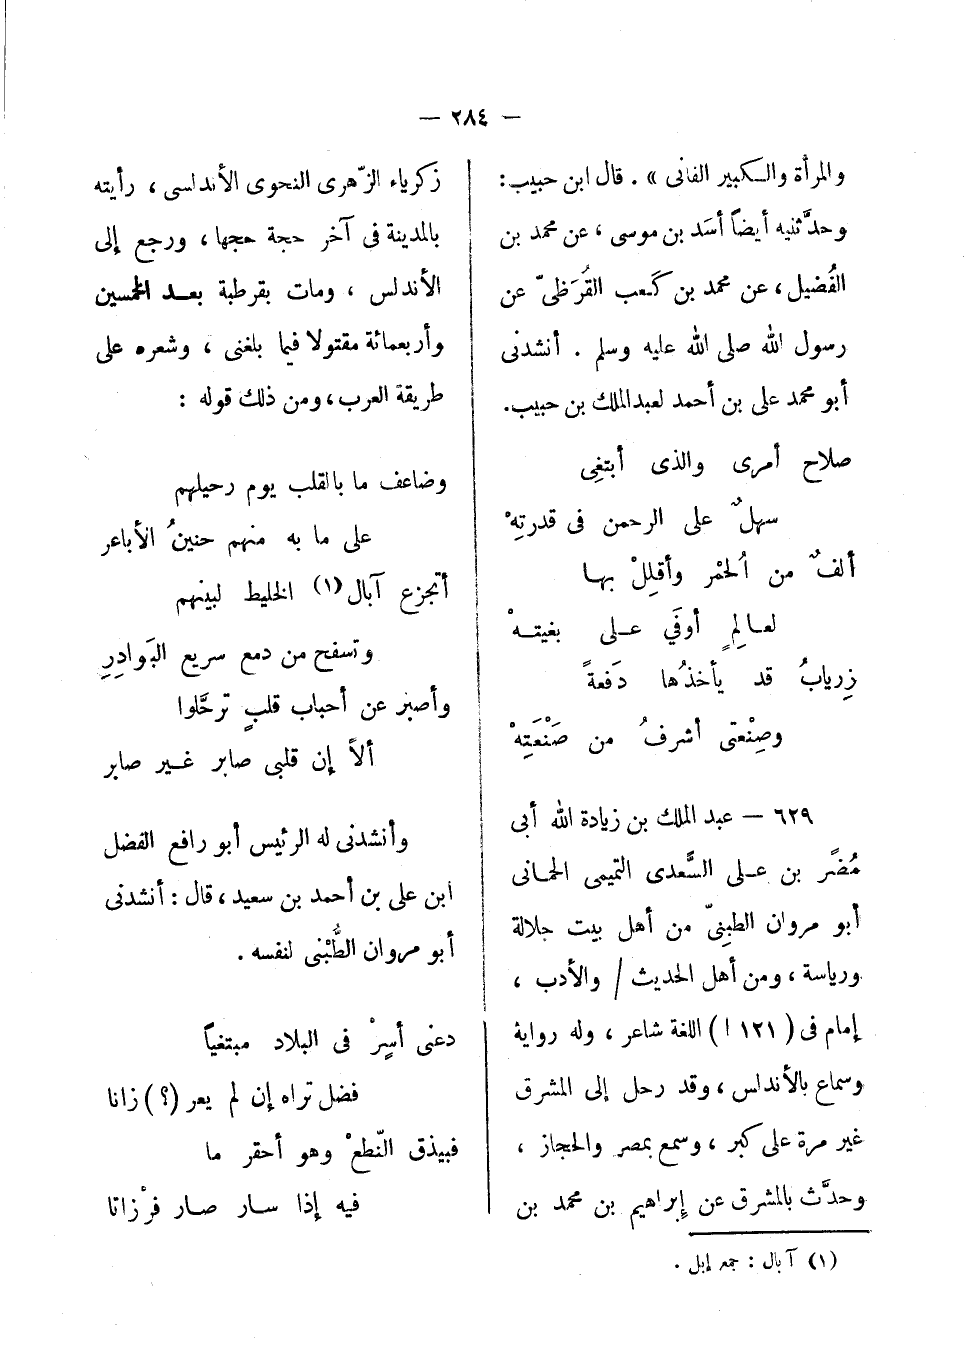 — ٢٨٤ —
والمرأة والكبير الفانى » . قال ابن حبيب :
وحدَّثنيه أيضاً أسَد بن موسى ، عن محمد بن
الفُضيل ، عن محمد بن كَعب القُرَظىّ عن
رسول الله صلى الله عليه وسلم . أنشدنى
أبو محمد على بن أحمد لعبدالملك بن حبيب.
صلاح أمرى والذى أبتغِى
سهلٌ على الرحمن فى قدرتِهْ
ألفٌ من الُحمْر وأقلِلْ بها
لعالِمٍ أوفَي على بغيتهْ
زِريابُ قد يأخذُها دَفعةً
وصِنْعتى أشرفُ من صَنْعَتِهْ
٦٢٩ — عبد الملك بن زيادة الله أبى
مُضَر بن على السَّعدى التميمى الحمانى
أبو مروان الطبنِىّ من أهل بيت جلالة
ورياسة ، ومن أهل الحديث / والأدب ،
إمام فى ( ١٢١ ا ) اللغة شاعر ، وله رواية
وسماع بالأندلس ، وقد رحل إلى المشرق
غير مرة على كبر ، وسمع بمصر والحجاز ،
وحدَّث بالمشرق عن إبراهيم بن محمد بن
زكرياء الزّهرى النحوى الأندلسى ، رأيته
بالمدينة فى آخر حجة حجها ، ورجع إلى
الأندلس ، ومات بقرطبة بعد الخمسين
وأربعمائة مقتولا فيما بلغنى ، وشعره على
طريقة العرب ، ومن ذلك قوله :
وضاعف ما بالقلب يوم رحيلهم
على ما به منهم حنينُ الأباعر
أتجزع آبال (١) الخليط لبينهم
وتسفح من دمع سريع البَوادِرِ
وأصبر عن أحباب قلبٍ ترحَّلوا
ألاَ إن قلبى صابر غير صابر
وأنشدنى له الرئيس أبو رافع الفضل
ابن على بن أحمد بن سعيد ، قال : أنشدنى
أبو مروان الطُّبْنى لنفسه .
دعنى أسِرْ فى البلاد مبتغياً
فضل تراه إن لم يعر (؟) زانا
فبيذق النّطعْ وهو أحقر ما
فيه إذا سار صار فرْزانا
(١) آبال : جمع إبل .